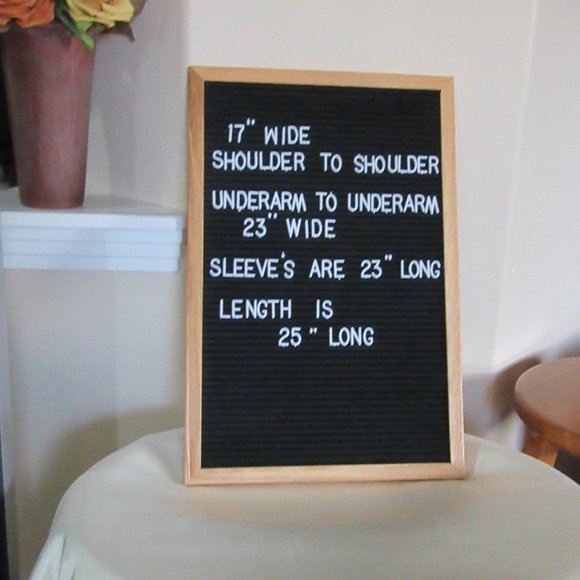 17" WIDE
SHOULDER TO SHOULDER
UNDERARM TO UNDERARM
23" WIDE
SLEEVE'S ARE 23" LONG
LENGTH IS
25" LONG